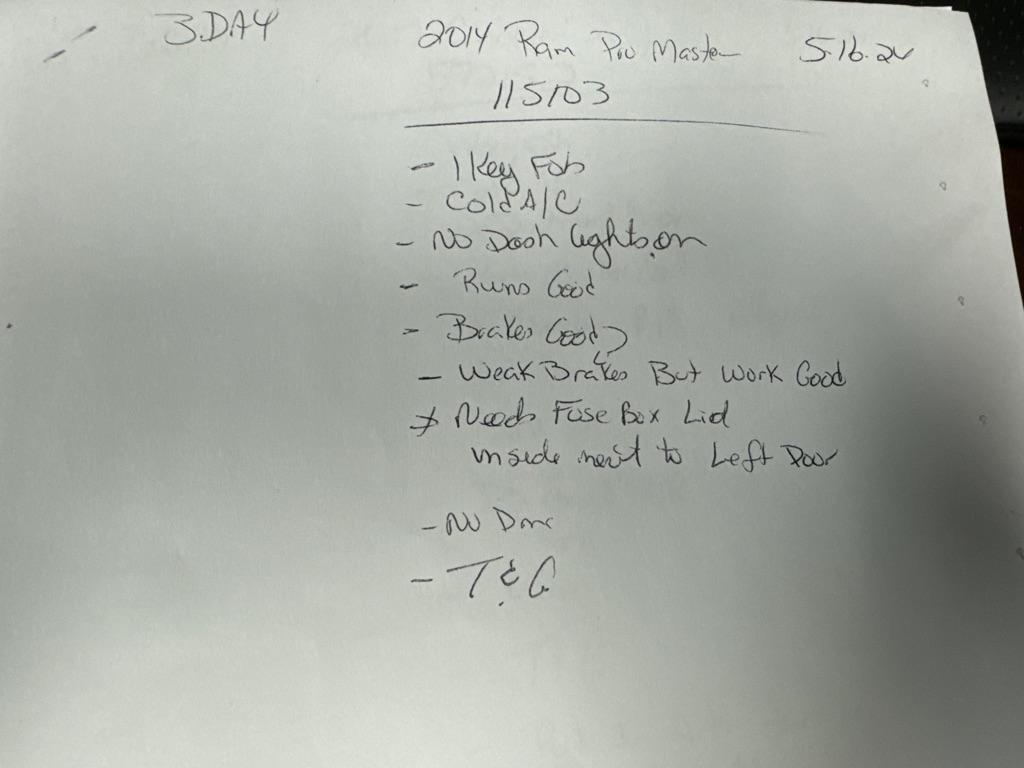 3.DAY
2014 Ram Pro Master 5-16-24
115103
- 1 Key Fob
- Cold A/C
- No Dash lights on
- Runs Good
- Brakes Good
- Weak Brakes But Work Good
* Needs Fuse Box Lid
inside next to Left Door
- No
- T & G